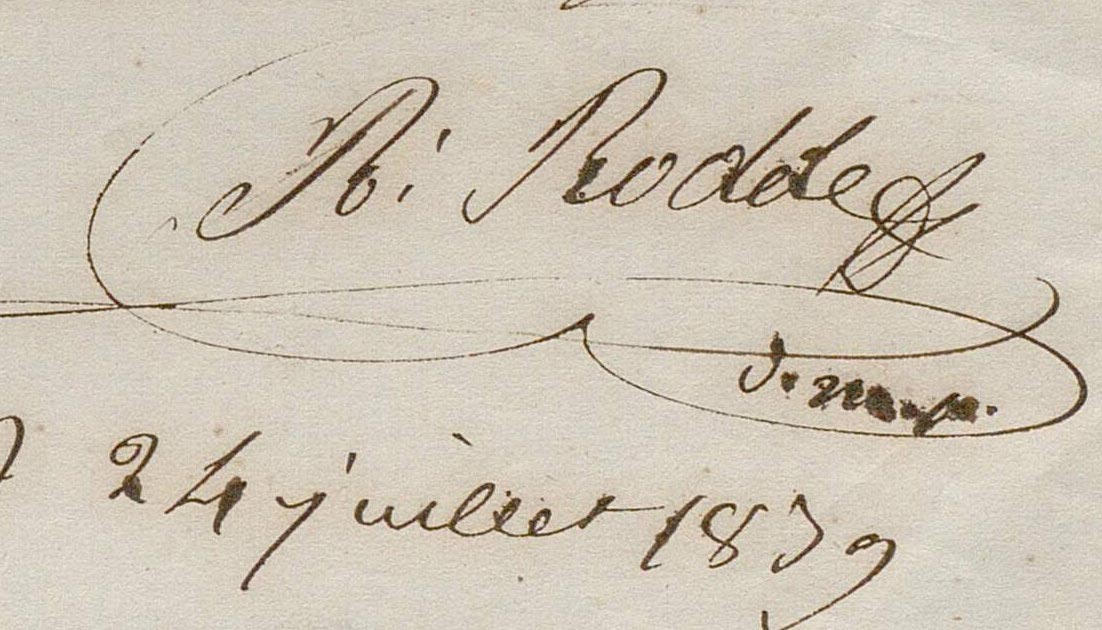 Ri Rodde
d.m.p.
24 juillet 1839